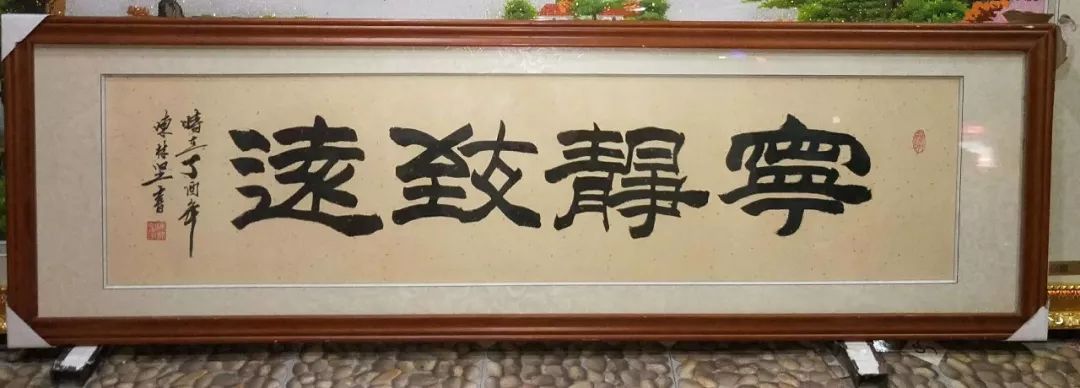 寧靜致遠
時在丁酉年
陳林墨書